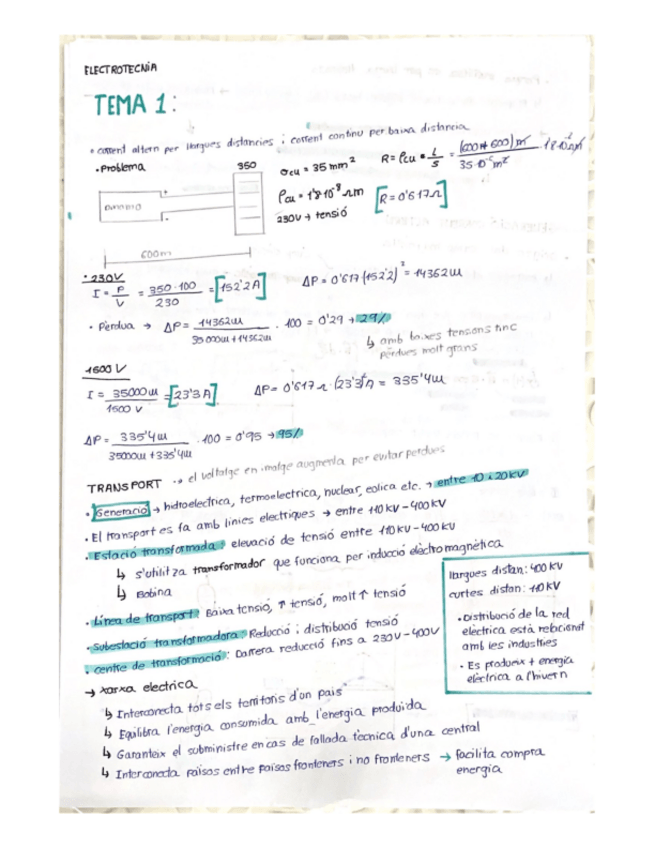 ELECTROTECNIA
TEMA 1:
• corrent altern per llargues distancies i corrent continu per baixa distancia
• Problema
350
σcu = 35 mm²
R = ρcu · L/S = (600+600)m / 35·10⁻⁶m² · 1'8·10⁻⁸Ωm
ρcu = 1'8·10⁻⁸ Ωm
[R = 0'617Ω]
230V → tensió
DINAMO
+
-
600m
• 230V
I = P/V = 350·100/230 = [152'2A]
ΔP = 0'617(152'2)² = 14362W
• Pèrdua → ΔP = 14362W / 35000W + 14362W · 100 = 0'29 → 29%
↳ amb baixes tensions tinc
pèrdues molt grans
1500 V
I = 35000W / 1500 V = [23'3A]
ΔP = 0'617Ω·(23'3)²A = 335'4W
ΔP = 335'4W / 35000W + 335'4W · 100 = 0'95 → 95%
TRANSPORT → el voltatge en imatge augmenta per evitar pèrdues
• Generació → hidroelectrica, termoelectrica, nuclear, eolica etc. → entre 10 i 20KV
• El transport es fa amb linies electriques → entre 110KV - 400KV
• Estació transformada: elevació de tensió entre 110KV - 400KV
↳ s'utilitza transformador que funciona per inducció electromagnètica
↳ Bobina
• Línea de transport: Baixa tensió, ↑ tensió, molt ↑ tensió
• Subestació transformadora: Reducció i distribució tensió
• centre de transformació: Darrera reducció fins a 230V - 400V
llargues distan: 400KV
curtes distan: 110KV
• Distribució de la red
electrica està relacionat
amb les industries
• Es produeix + energia
elèctrica a l'hivern
→ xarxa electrica
↳ Interconecta tots els territoris d'un pais
↳ Equilibra l'energia consumida amb l'energia produida
↳ Garanteix el subministre en cas de fallada tècnica d'una central
↳ Interconecta països entre països fronteners i no fronteners → facilita compra
energia